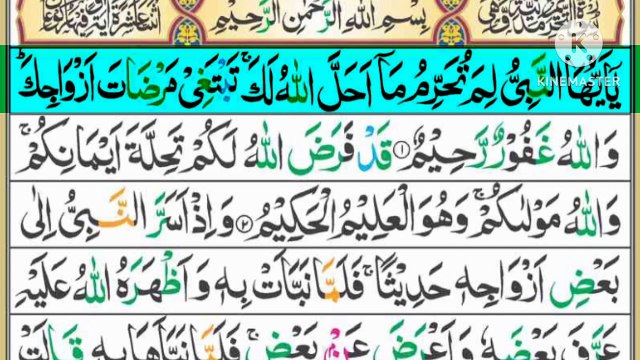 بِسْمِ اللهِ الرَّحْمٰنِ الرَّحِيْمِ
KINEMASTER
يٰۤاَيُّهَا النَّبِىُّ لِمَ تُحَرِّمُ مَاۤ اَحَلَّ اللهُ لَكَ ۚ تَبْتَغِىْ مَرْضَاتَ اَزْوَاجِكَ ؕ
وَاللهُ غَفُوْرٌ رَّحِيْمٌ ۝۱ قَدْ فَرَضَ اللهُ لَكُمْ تَحِلَّةَ اَيْمَانِكُمْ ۚ
وَاللهُ مَوْلٰىكُمْ ۚ وَهُوَ الْعَلِيْمُ الْحَكِيْمُ ۝۲ وَاِذْ اَسَرَّ النَّبِىُّ اِلٰى
بَعْضِ اَزْوَاجِهٖ حَدِيْثًا ۚ فَلَمَّا نَبَّاَتْ بِهٖ وَاَظْهَرَهُ اللهُ عَلَيْهِ
عَرَّفَ بَعْضَهٗ وَاَعْرَضَ عَنْۢ بَعْضٍ ۚ فَلَمَّا نَبَّاَهَا بِهٖ قَالَتْ